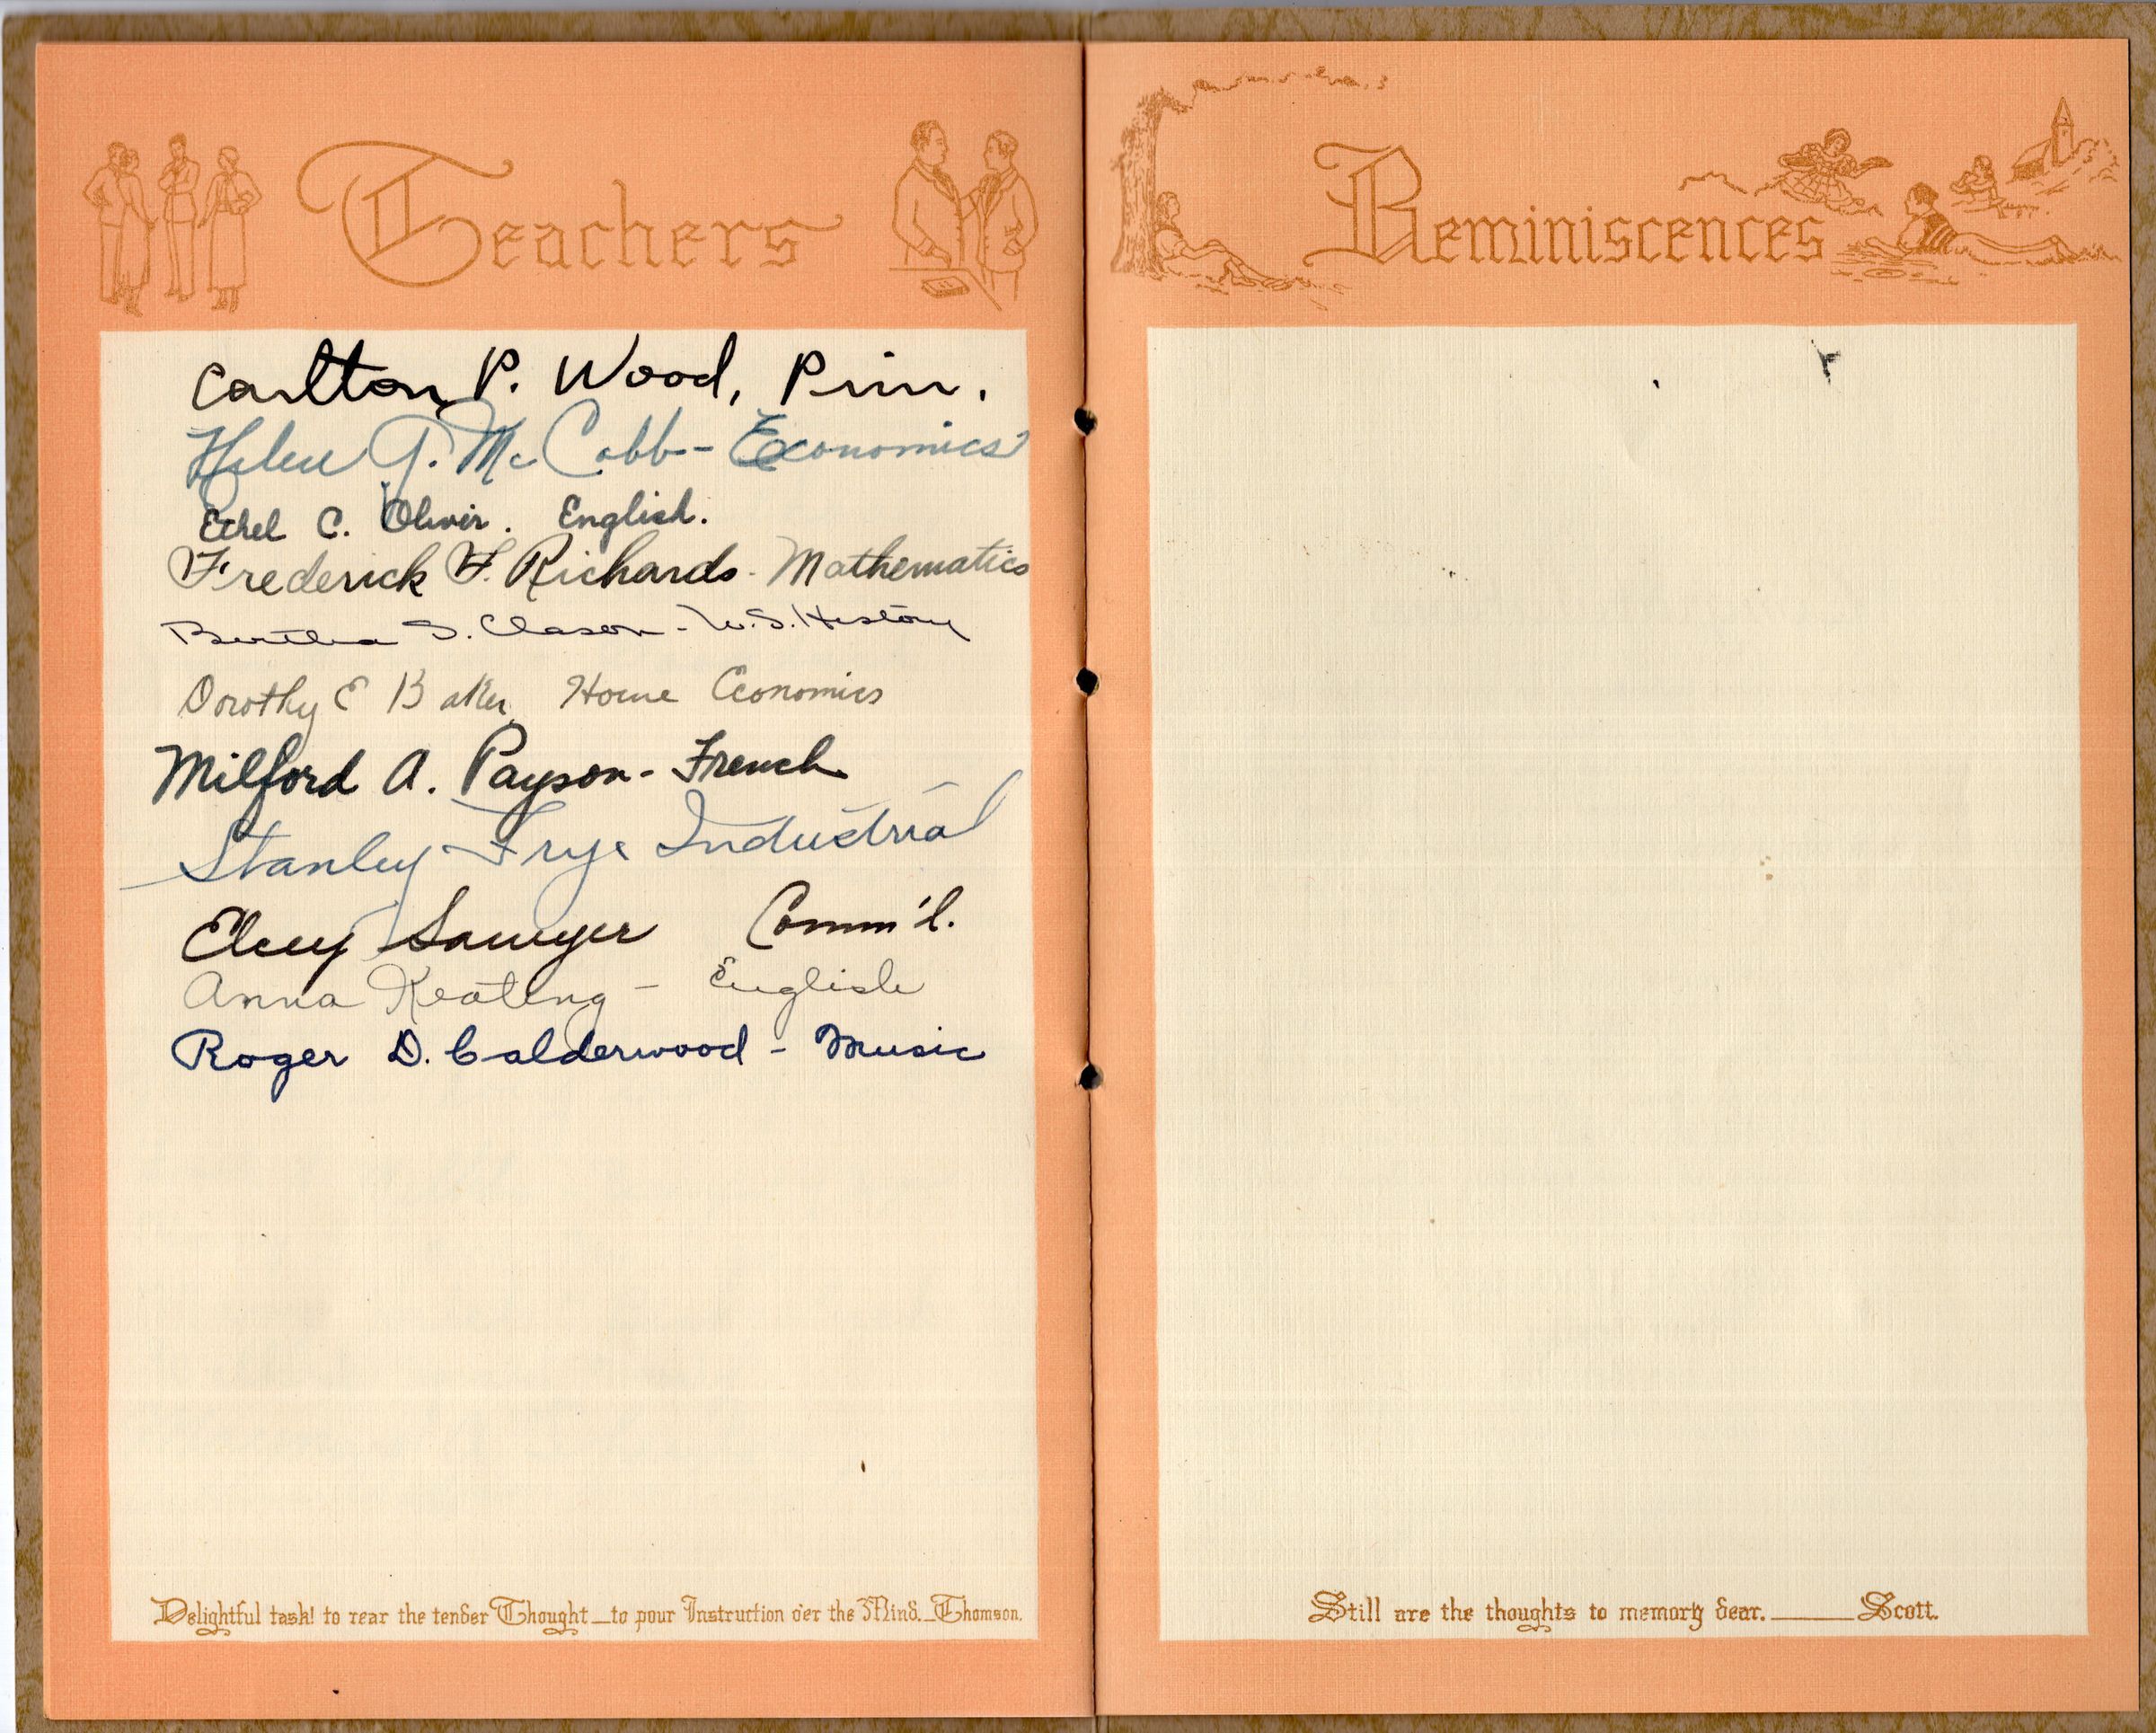 Teachers
Carlton P. Wood, Prin.
Helen G. McCobb - Economics
Ethel C. Oliver. English.
Frederick F. Richards - Mathematics
Bertha S. Clason - U.S. History
Dorothy E Baker, Home Economics
Milford A. Payson - French
Stanley Frye Industrial
Elcey Sawyer Comm'l.
Anna Keating - English
Roger D. Calderwood - Music
Delightful task! to rear the tender Thought _ to pour Instruction o'er the Mind. _ Thomson.
Reminiscences
Still are the thoughts to memory dear. _____ Scott.